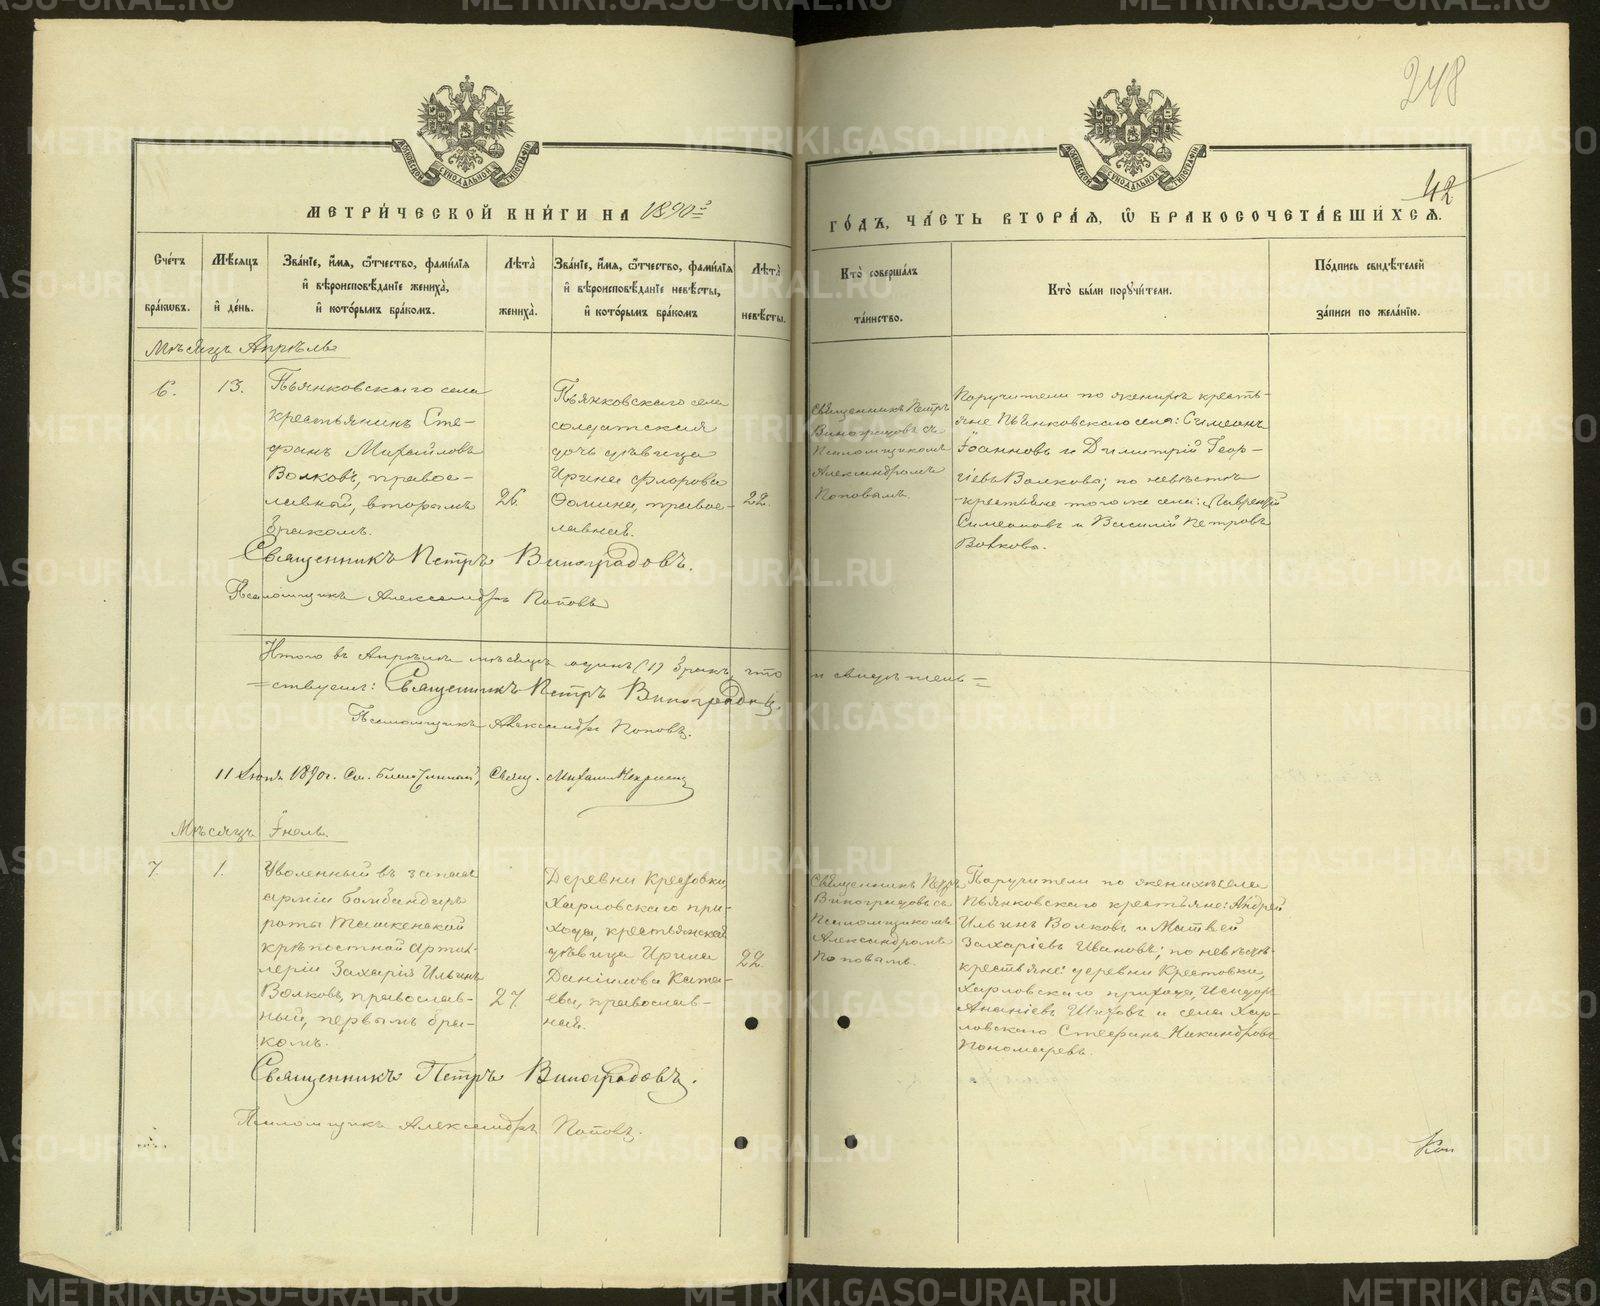 248
42
МОСКОВСКОЙ СѴНОДАЛЬНОЙ ТИПОГРАФІИ
МОСКОВСКОЙ СѴНОДАЛЬНОЙ ТИПОГРАФІИ
МЕТРИ́ЧЕСКОЙ КНИ́ГИ НА 1890й
ГО́ДЪ, ЧА́СТЬ ВТОРА́Я, Ѽ БРАКОСОЧЕТА́ВШИХСЯ.
Сче́тъ бра́кѡвъ.
Мѣ́сяцъ и҆ де́нь.
Зва́нїе, и҆́мя, ѻ҆́тчество, фами́лїя
и҆ вѣроисповѣ́данїе жениха̀,
и҆ кото́рымъ бра́комъ.
Лѣта̀ жениха̀.
Зва́нїе, и҆́мя, ѻ҆́тчество, фами́лїя
и҆ вѣроисповѣ́данїе невѣ́сты,
и҆ кото́рымъ бра́комъ
Лѣта̀ невѣ́сты.
Кто̀ соверша́лъ
та́инство.
Кто̀ бы́ли порꙋчи́тели.
По́дпись свидѣ́телей
за́писи по жела́нїю.
Мѣсяцъ Апрѣль
6.
13.
Пьянковскаго села
крестьянинъ Сте-
фанъ Михайловъ
Волковъ, правос-
лавный, вторымъ
бракомъ.
26.
Пьянковскаго села
солдатская
дочь дѣвица
Ирина Флорова
Ѳомина, правос-
лавная.
22.
Священникъ Петръ
Виноградовъ съ
Псаломщикомъ
Александромъ
Поповымъ.
Поручители по женихѣ кресть-
яне Пьянковскаго села: Симеонъ
Іоанновъ и Димитрій Геор-
гіевъ Волковы; по невѣстѣ
крестьяне того же села: Лаврентій
Симеоновъ и Василій Петровъ
Волковы.
Священникъ Петръ Виноградовъ.
Псаломщикъ Александръ Поповъ
Итого въ Апрѣлѣ мѣсяцѣ одинъ (1) бракъ, что и свидѣтель=
=ствуемъ: Священникъ Петръ Виноградовъ.
Псаломщикъ Александръ Поповъ.
11 Іюня 1890г. См. Благочинный, Свящ. Михаилъ
Мѣсяцъ Іюль.
7.
1.
Уволенный въ запасъ
арміи бомбандиръ
роты Ташкенской
крѣпостной артил-
леріи Захарій Ильинъ
Волковъ, православ-
ный, первымъ бра-
комъ.
27.
Деревни Крестовки,
Харловскаго при-
хода, крестьянская
дѣвица Ирина
Даніилова Ката-
ева, православ-
ная.
22.
Священникъ Петръ
Виноградовъ съ
Псаломщикомъ
Александромъ
Поповымъ.
Поручители по женихѣ села
Пьянковскаго крестьяне: Андрей
Ильинъ Волковъ и Матвей
Захаріевъ Ивановъ; по невѣстѣ
крестьяне: деревни Крестовки,
Харловскаго прихода, Исидоръ
Ананіевъ Шиховъ и села Хар-
ловскаго Стефанъ Никандровъ
Пономаревъ.
Священникъ Петръ Виноградовъ.
Псаломщикъ Александръ Поповъ.